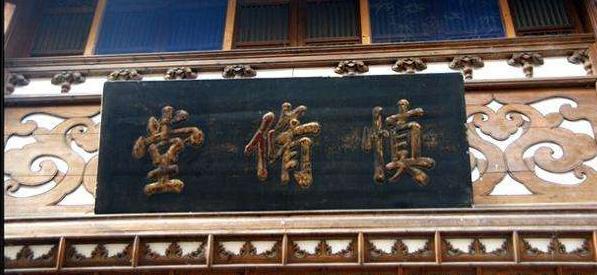 慎脩堂